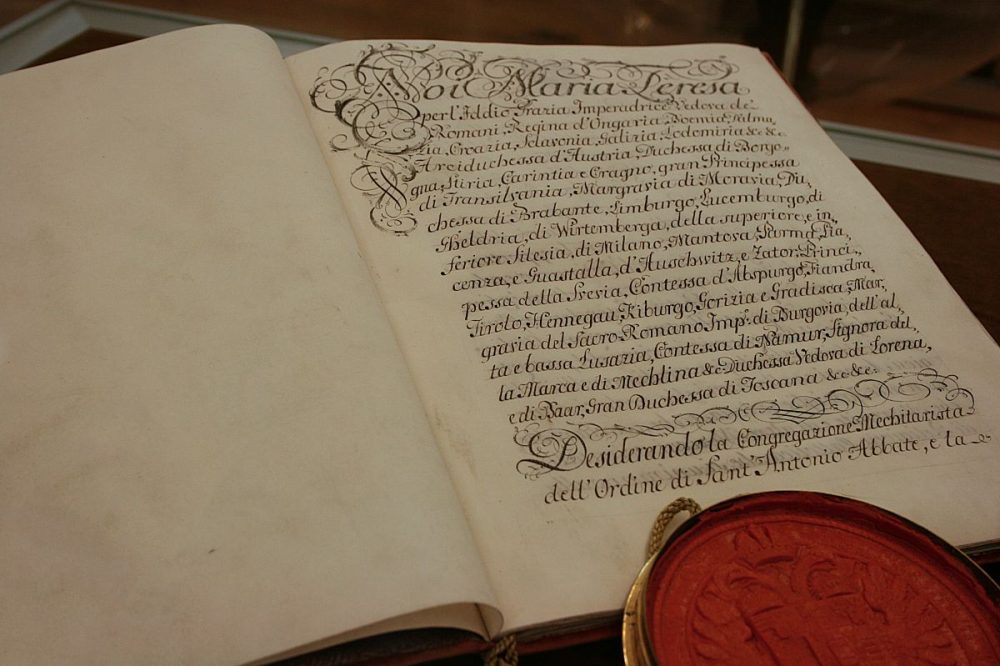 Noi Maria Teresa
per l'Iddio Grazia Imperadrice Vedova de'
Romani, Regina d'Ongaria, Boemia, Dalma,,
zia, Croazia, Sclavonia, Galizia, Lodomiria &c &c
Arciduchessa d'Austria, Duchessa di Borgo,,
gna, Stiria, Carintia e Cragno, gran Principessa
di Transilvania, Margravia di Moravia, Du,,
chessa di Brabante, Limburgo, Lucemburgo, di
Gheldria, di Wirtemberga, della superiore, e in,,
feriore Silesia, di Milano, Mantova, Parma, Pia,,
cenza, e Guastalla, d'Auschwitz, e Zator, Princi,,
pessa della Svevia, Contessa d'Abspurgo, Fiandra,
Tirolo, Hennegau, Kiburgo, Gorizia e Gradisca, Mar,,
gravia del Sacro Romano Imp:º di Burgovia, dell'al,,
ta e bassa Lusazia, Contessa di Namur, Signora del,,
la Marca e di Mechlina &c Duchessa Vedova di Lorena,
e di Baar, Gran Duchessa di Toscana &c &c &c.
Desiderando la Congregazione Mechitarista
dell'Ordine di Sant'Antonio Abbate, e la